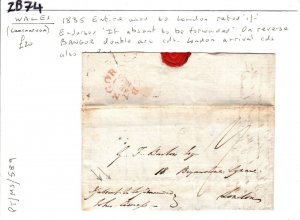 2B74
WALES
(CAERNARVON)
£20
1835 Entire used to London rated '11'
Endorsed "If absent to be forwarded" On reverse
BANGOR double arc cds. London arrival cds
also
G. F. Barlow Esq
Bryanstone Square
London
If absent to be forwarded
PS/MS/589